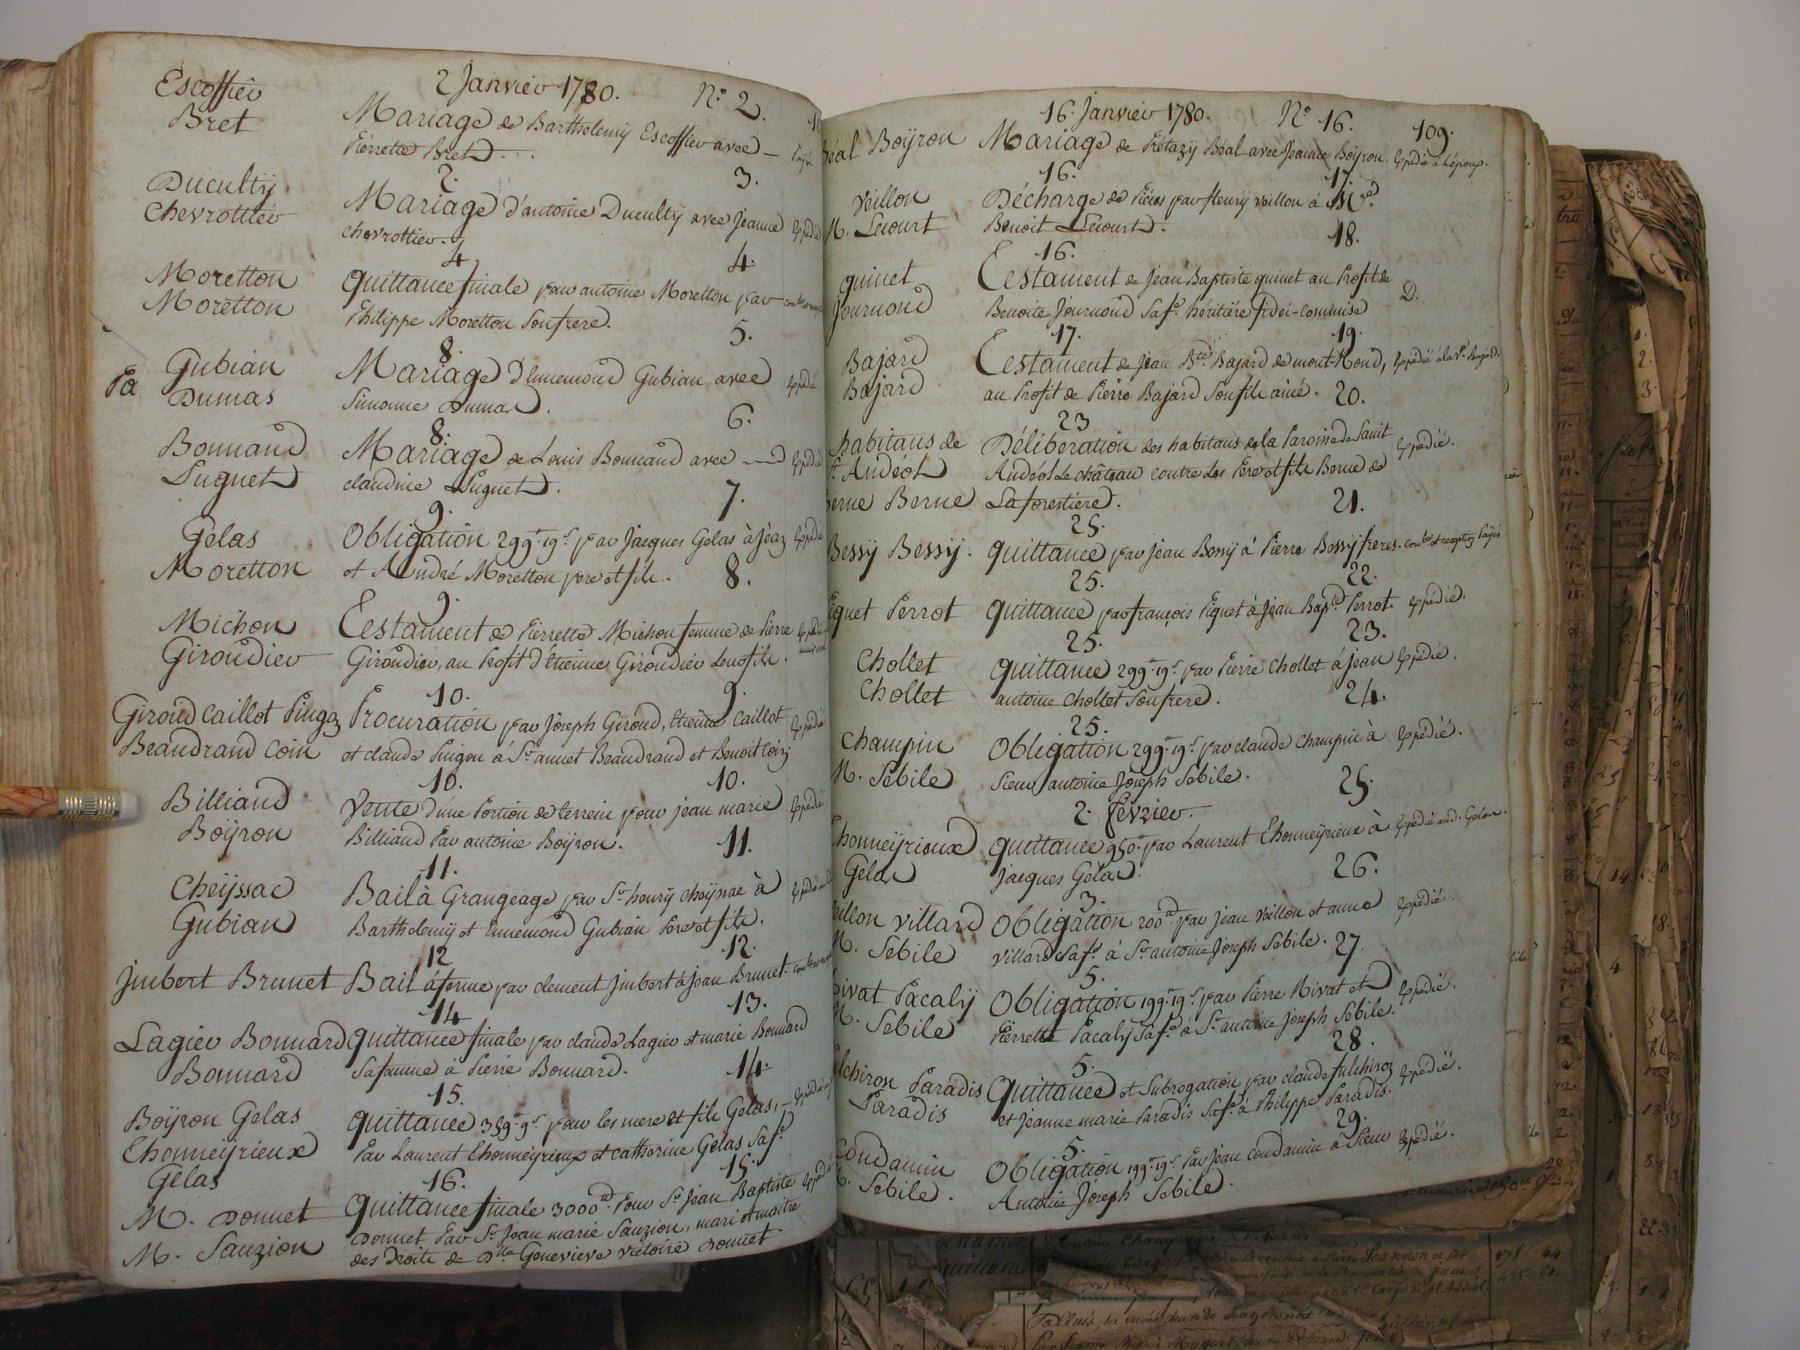 2 Janvier 1780. N.° 2.
Escoffier
Bret
Mariage de Barthelemy Escoffier avec
Pierrette Bret.
2. 3.
Ducultÿ
Chevrottier
Mariage d'antoine Ducultÿ avec Jeanne Expedié
chevrottier.
4 4.
Moretton
Moretton
quittance finale par antoine Moretton par
Philippe Moretton Son frere.
8. 5.
Gubian
Dumas
Mariage d'Ennemond Gubian avec Expedié.
Simonne Dumas.
8. 6.
Bonnand
Puguet
Mariage de Louis Bonnand avec Expedié
claudine Puguet.
9. 7.
Gelas
Moretton
Obligation 299.tt 19.s par Jacques Gelas à Jean Expedié
et André Moretton pere et fils.
9. 8.
Michon
Giroudier
Testament de Pierrette Michon femme de Pierre Expedié
Giroudier, au Profit d'Etienne Giroudier leur fils.
10. 9.
Giroud Caillot Pingon
Beaudrand Coin
Procuration par Joseph Giroud, Etienne Caillot Expedié
et claude Pingon à S.r annet Beaudrand et Benoit Coin
10. 10.
Billiand
Boÿron
Vente d'une Portion de terrein pour jean marie Expedié
Billiand Par antoine Boÿron.
11. 11.
Cheÿssac
Gubian
Bail à Grangeage par S.r henrÿ cheÿssac à Expedié
Barthelemÿ et Ennemond Gubian Pere et fils.
12 12.
Jmbert Brunet
Bail à ferme par clement Jmbert à Jean Brunet.
14 13.
Lagier Bonnard
Bonnard
quittance finale par claude Lagier et marie Bonnard
Sa femme à Pierre Bonnard.
15. 14.
Boÿron Gelas
Thonneÿrieux
Gelas
quittance 359.tt 9.s pour les mere et fils Gelas, Expedié
Par Laurent Thonneÿrieux et catherine Gelas Sa f.e
16. 15.
M. Donnet
M. Sauzion
quittance finale 3000.tt Pour S.r Jean Baptiste Expedié
Donnet Par S.r Jean marie Sauzion, mari et maitre
des Droits de D.lle Genevieve victoire Donnet.
16. Janvier 1780. N.° 16. 109.
Béal Boÿron
Mariage de Béal avec Jeanne Boÿron. Expedié à L'époux.
16. 17.
Voillon
M. Lecourt
Décharge de Piéces par fleurÿ Voillon à M.e
Benoit Lecourt.
16. 18.
quinet
Journoud
Testament de Jean Baptiste quinet au Profit de D.
Benoite Journoud Sa f.e héritiére fidei-commise
17. 19.
Bajard
Bajard
Testament de Jean B.te Bajard de mont-Rond, Expedié à la V.e Bajard.
au Profit de Pierre Bajard Son fils ainé.
23 20.
habitans de
S.t Andéol
Berne Berne
Délibération des habitans de la Paroisse de Saint Expedié.
Andéol Le château contre Les Pere et fils Berne de
Laforestiere.
25. 21.
Bessÿ Bessÿ.
quittance par Jean Bessÿ à Pierre Bessÿ freres.
25. 22.
Piquet Perrot
quittance par françois Piquet à Jean Bap.te Perrot. Expedié.
25. 23.
Chollet
Chollet
quittance 299.tt 19.s par Pierre Chollet à jean Expedié.
antoine chollet Son frere.
25. 24.
Champin
M. Sebile
Obligation 299.tt 19.s par claude Champin à Expedié.
Sieur antoine Joseph Sebile.
2. Février. 25.
Thonneÿrieux
Gelas
quittance 950.tt par Laurent Thonneÿrieux à Expedié aud. Gelas.
Jacques Gelas.
3. 26.
Voillon Villard
M. Sebile
Obligation 200.tt par jean Voillon et anne Expedié.
Villard Sa f.e à S.r antoine Joseph Sebile.
5. 27.
Rivat Pacalÿ
M. Sebile
Obligation 199.tt 19.s par Pierre Rivat et Expedié.
Pierrette Pacalÿ Sa f.e à S.r antoine Joseph Sebile.
5. 28.
fulchiron Paradis
Paradis
Quittance et Subrogation par claude fulchiron Expedié.
et Jeanne marie Paradis Sa f.e à Philippe Paradis.
5. 29.
Condamin
M. Sebile.
Obligation 199.tt 19.s Par Jean Condamin à Sieur Expedié.
Antoine Joseph Sebile.